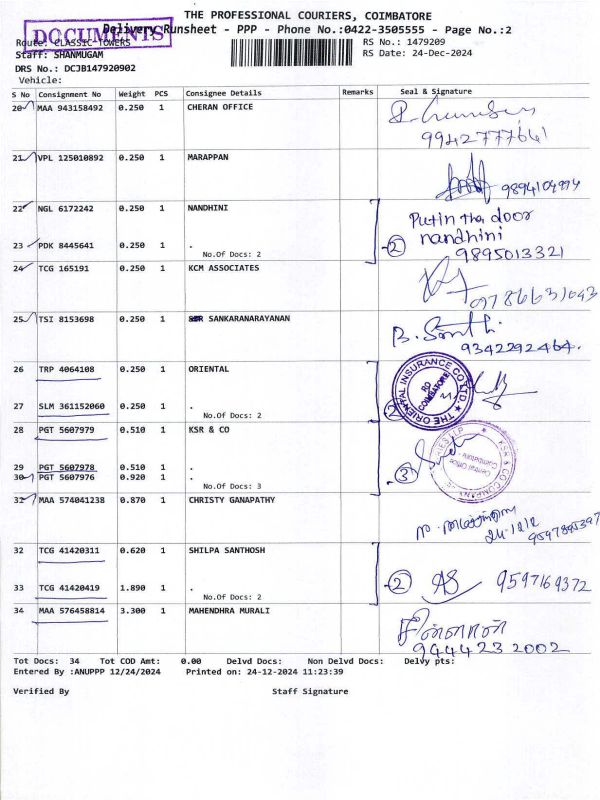 THE PROFESSIONAL COURIERS, COIMBATORE
DOCUMENTS
Delivery Runsheet - PPP - Phone No.:0422-3505555 - Page No.:2
Route: CLASSIC TOWERS
RS No.: 1479209
Staff: SHANMUGAM
RS Date: 24-Dec-2024
DRS No.: DCJB147920902
Vehicle:
S No Consignment No Weight PCS Consignee Details Remarks Seal & Signature
20 MAA 943158492 0.250 1 CHERAN OFFICE
9942777641
21 VPL 125010892 0.250 1 MARAPPAN
9894104994
22 NGL 6172242 0.250 1 NANDHINI
Put in the door
nandhini
23 PDK 8445641 0.250 1 .
2
9895013321
No.Of Docs: 2
24 TCG 165191 0.250 1 KCM ASSOCIATES
9786631043
25 TSI 8153698 0.250 1 SANKARANARAYANAN
B. Santhi
9342292464.
26 TRP 4064108 0.250 1 ORIENTAL
THE ORIENTAL INSURANCE CO. LTD.
RO
COIMBATORE
27 SLM 361152060 0.250 1 .
2
No.Of Docs: 2
28 PGT 5607979 0.510 1 KSR & CO
KSR & CO COMPANY
Central Office
Coimbatore
29 PGT 5607978 0.510 1 .
3
30 PGT 5607976 0.920 1 .
No.Of Docs: 3
31 MAA 574041238 0.870 1 CHRISTY GANAPATHY
24/12/2
9597895397
32 TCG 41420311 0.620 1 SHILPA SANTHOSH
2 9597169372
33 TCG 41420419 1.890 1 .
No.Of Docs: 2
34 MAA 576458814 3.300 1 MAHENDHRA MURALI
9444232002
Tot Docs: 34 Tot COD Amt: 0.00 Delvd Docs: Non Delvd Docs: Delvy pts:
Entered By :ANUPPP 12/24/2024 Printed on: 24-12-2024 11:23:39
Verified By Staff Signature